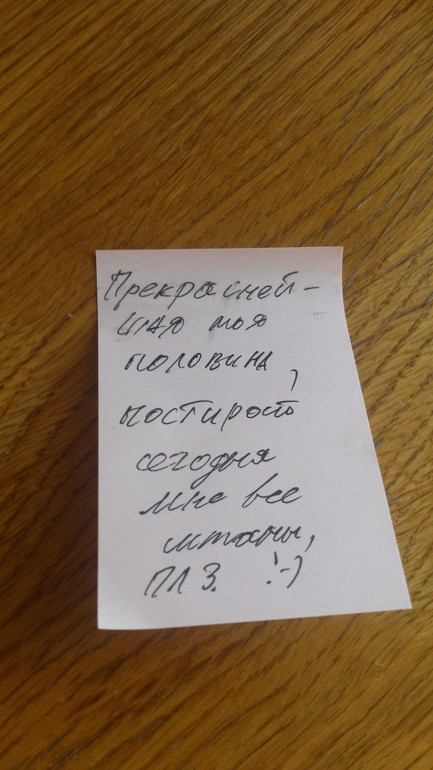 Прекрасней-
шая моя
половина,
постирай
сегодня
мне все
штаны,
ПЛЗ. !-)